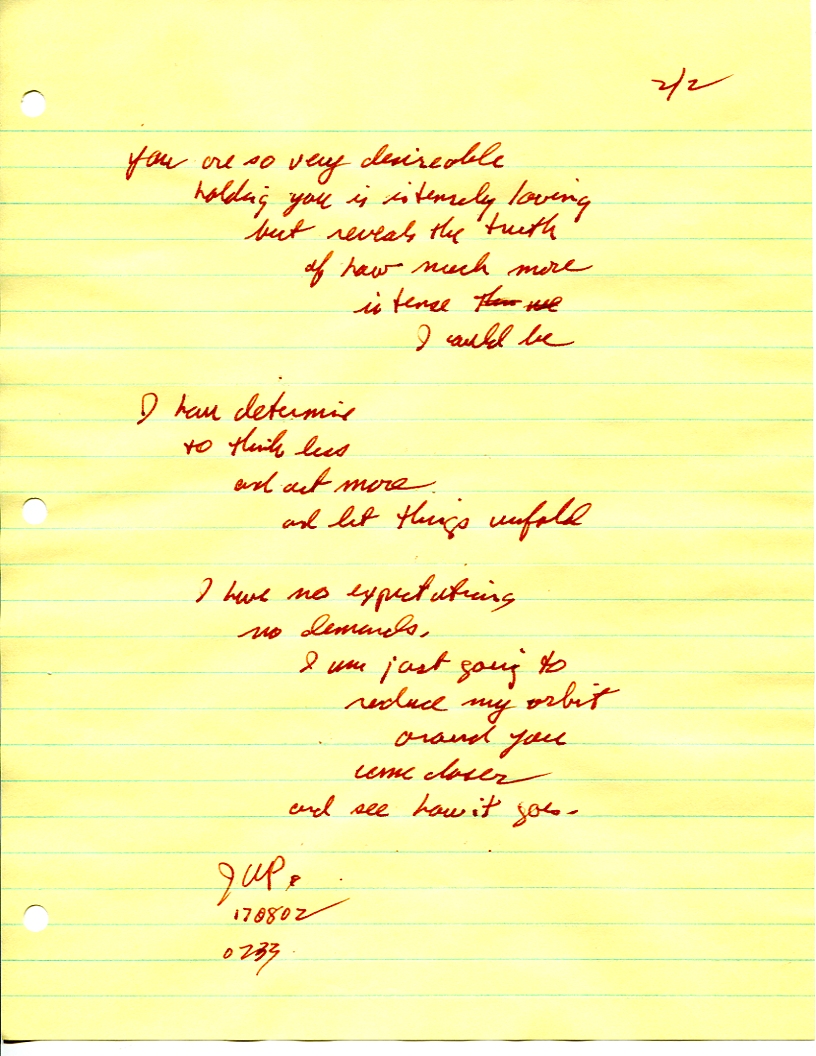 2/2
You are so very desireable
holding you is intensely loving
but reveals the truth
of how much more
intense than we
I could be
I have determine
to think less
and act more
and let things unfold
I have no expectations
no demands.
I am just going to
reduce my orbit
around you
come closer
and see how it goes.
JWP.
170802
0233